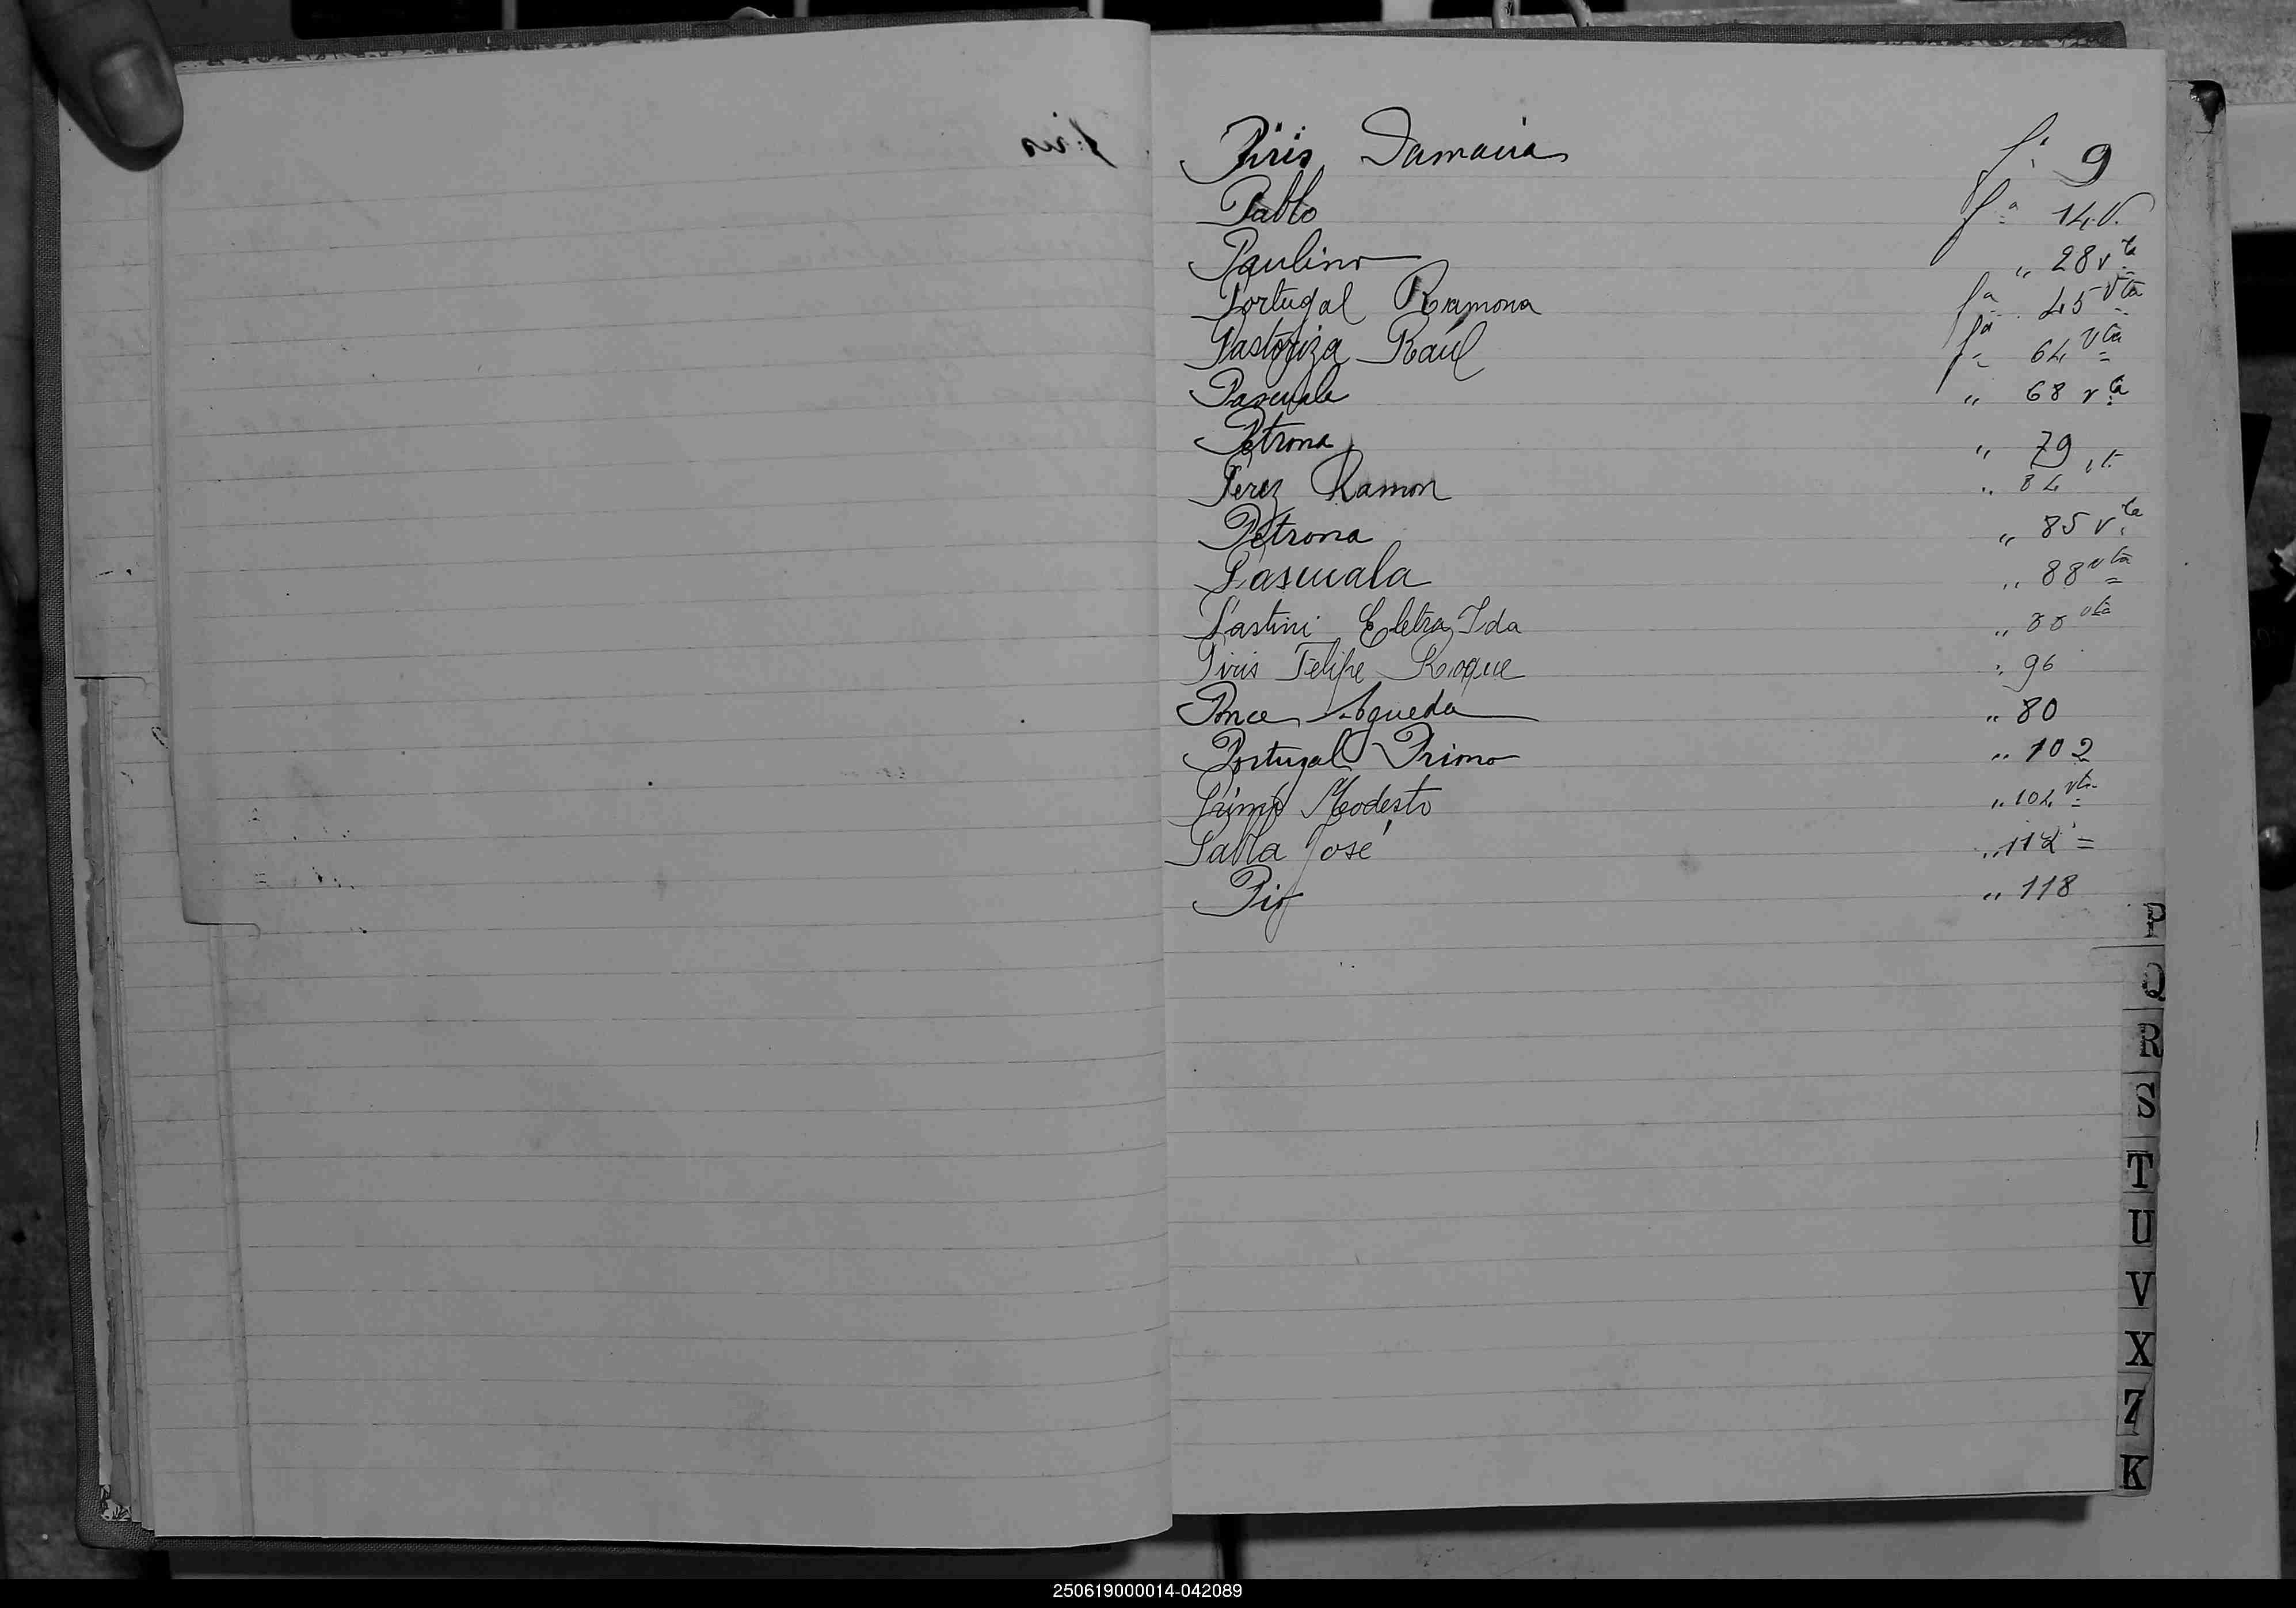 Piris Damacia fª 9
Pablo fª 14 V.
Paulino " 28 vta
Portugal Ramona fª 45 vta
Pastoriza Raúl fª 64 vta
Pascuala " 68 vta
Petrona " 79
Perez Ramon " 84 vt.
Petrona " 85 vta
Pascuala " 88 vta
Pastini Eletra Ida " 88 vta
Piris Felipe Roque " 96
Ponce Agueda " 80
Portugal Primo " 102
Primo Modesto " 104 vta
Pabla José " 112 =
Pio " 118
P
Q
R
S
T
U
V
X
Z
K
250619000014-042089